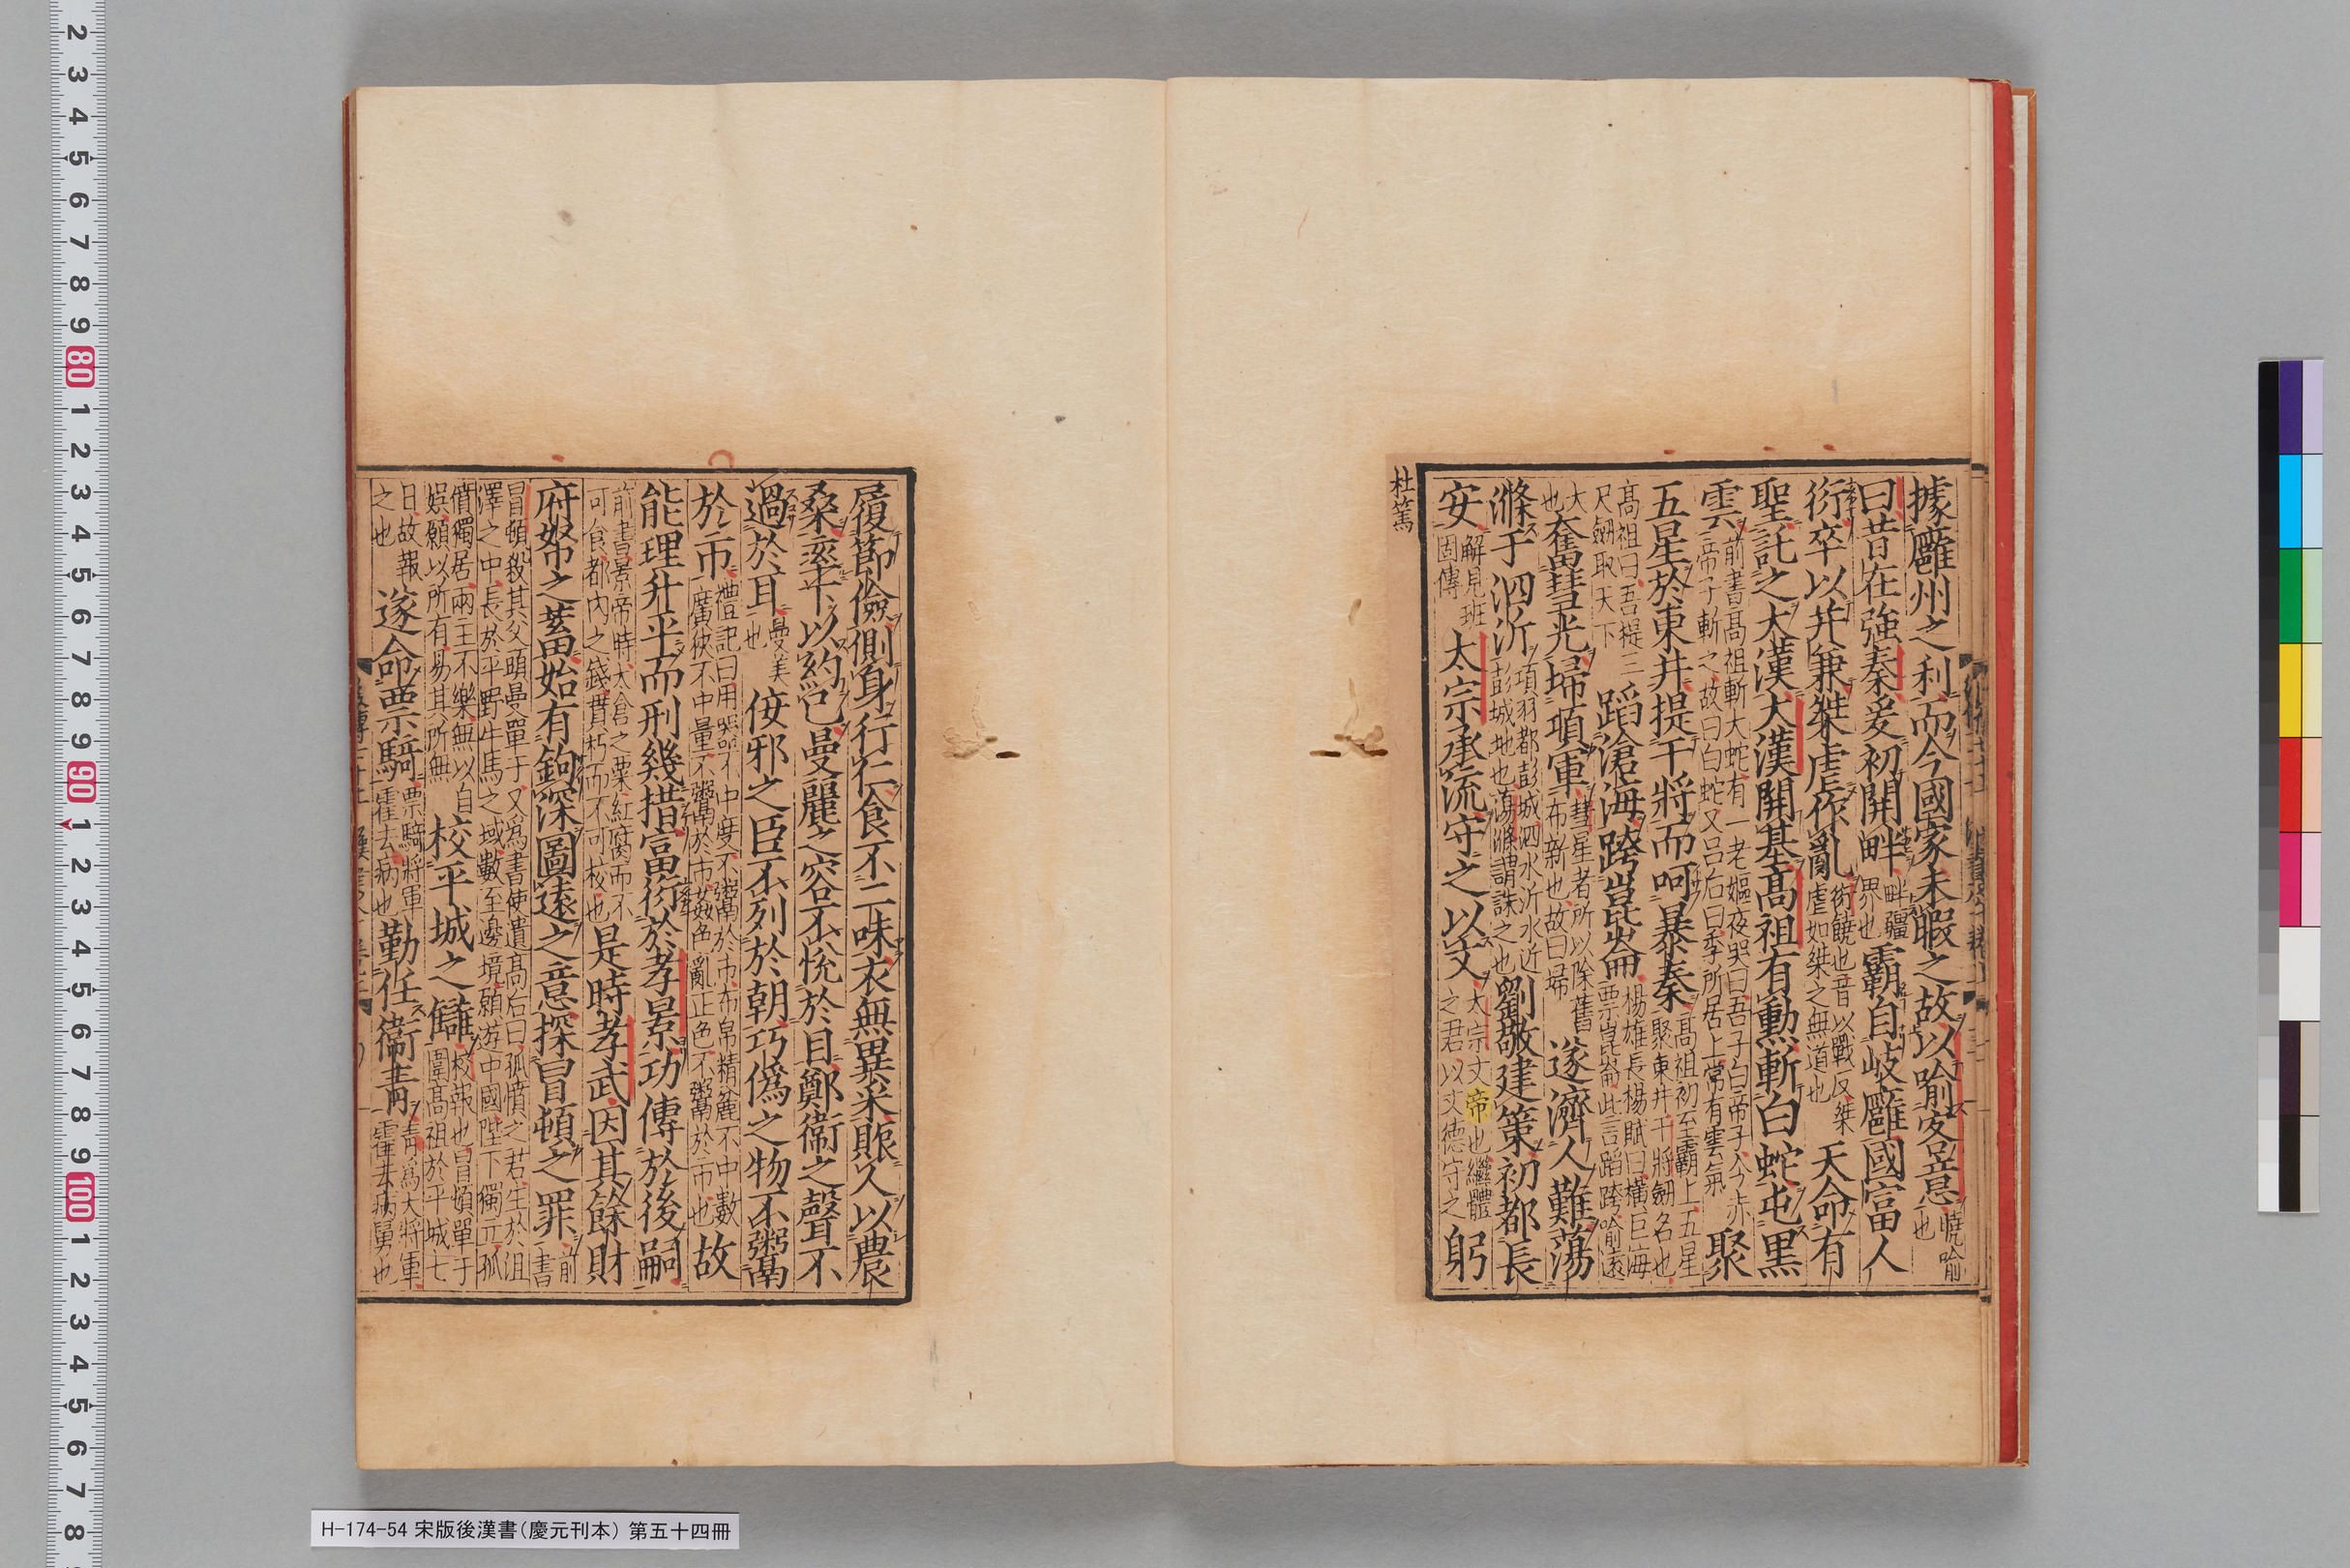 據廱州之利而今國家未暇之故以喻客意曉喻也
曰昔在強秦爰初開畔畔疆界也霸自岐廱國富人
衍卒以并兼桀虐作亂衍饒也音以戰反桀虐如桀之無道也天命有
聖託之大漢大漢開基高祖有勳斬白蛇屯黑
雲前書高祖斬大蛇有一老嫗夜哭曰吾子白帝子今赤帝子斬之故曰白蛇又呂后曰季所居上常有雲氣聚
五星於東井提干將而呵暴秦高祖初至霸上五星聚東井干將劒名也
高祖曰吾提三尺劒取天下蹈滄海跨崑崙楊雄長楊賦曰橫巨海票崑崙此言蹈跨喻遠
大也奮彗光埽項軍彗星者所以除舊布新也故曰埽遂濟人難蕩
滌于泗沂項羽都彭城泗水沂水近彭城地也蕩滌謂誅之也劉敬建策初都長
安解見班固傳太宗承流守之以文太宗文帝也繼體之君以文德守之躬
杜篤
履節儉側身行仁食不二味衣無異采賑人以農
桑率下以約己曼麗之容不悅於目鄭衛之聲不
過於耳曼美也佞邪之臣不列於朝巧偽之物不鬻
於市禮記曰用器不中度不鬻於市布帛精麄不中數廣狹不中量不鬻於市姦色亂正色不鬻於市也故
能理升平而刑幾措富衍於孝景功傳於後嗣
前書景帝時太倉之粟紅腐而不可食都內之錢貫朽而不可校也是時孝武因其餘財
府帑之蓄始有鉤深圖遠之意探冒頓之罪前書
冒頓殺其父頭曼單于又為書使遺高后曰孤僨之君生於沮澤之中長於平野牛馬之域數至邊境願游中國陛下獨立孤
僨獨居兩主不樂無以自娛願以所有易其所無校平城之讎校報也冒頓單于圍高祖於平城七
日故報之也遂命票騎票騎將軍霍去病也勤任衛青青為大將軍霍去病舅也
H-174-54 宋版後漢書（慶元刊本） 第五十四冊